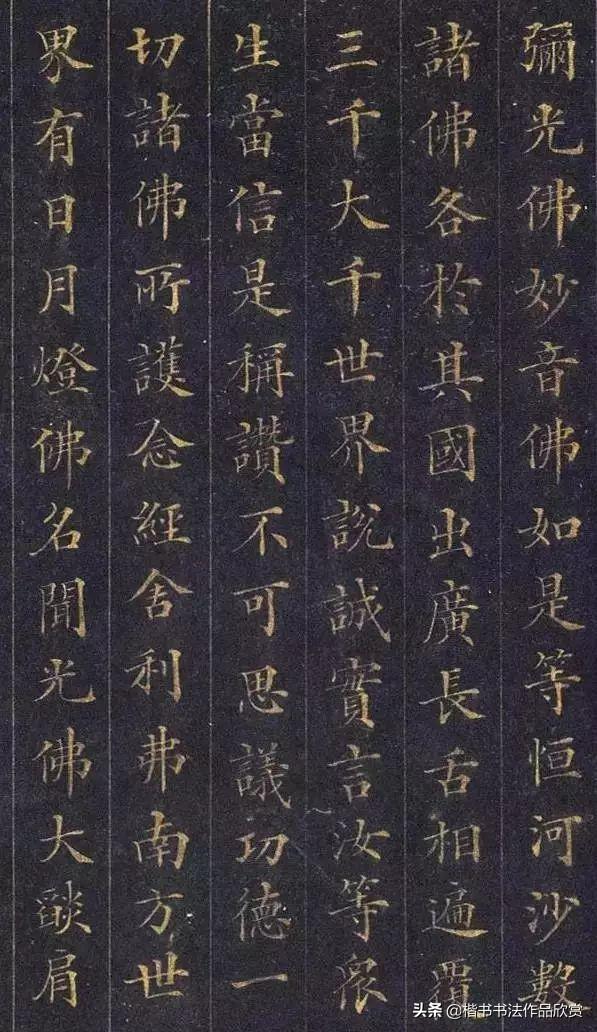 彌光佛妙音佛如是等恒河沙數
諸佛各於其國出廣長舌相遍覆
三千大千世界說誠實言汝等眾
生當信是稱讚不可思議功德一
切諸佛所護念經舍利弗南方世
界有日月燈佛名聞光佛大燄肩
头条 @楷书书法作品欣赏